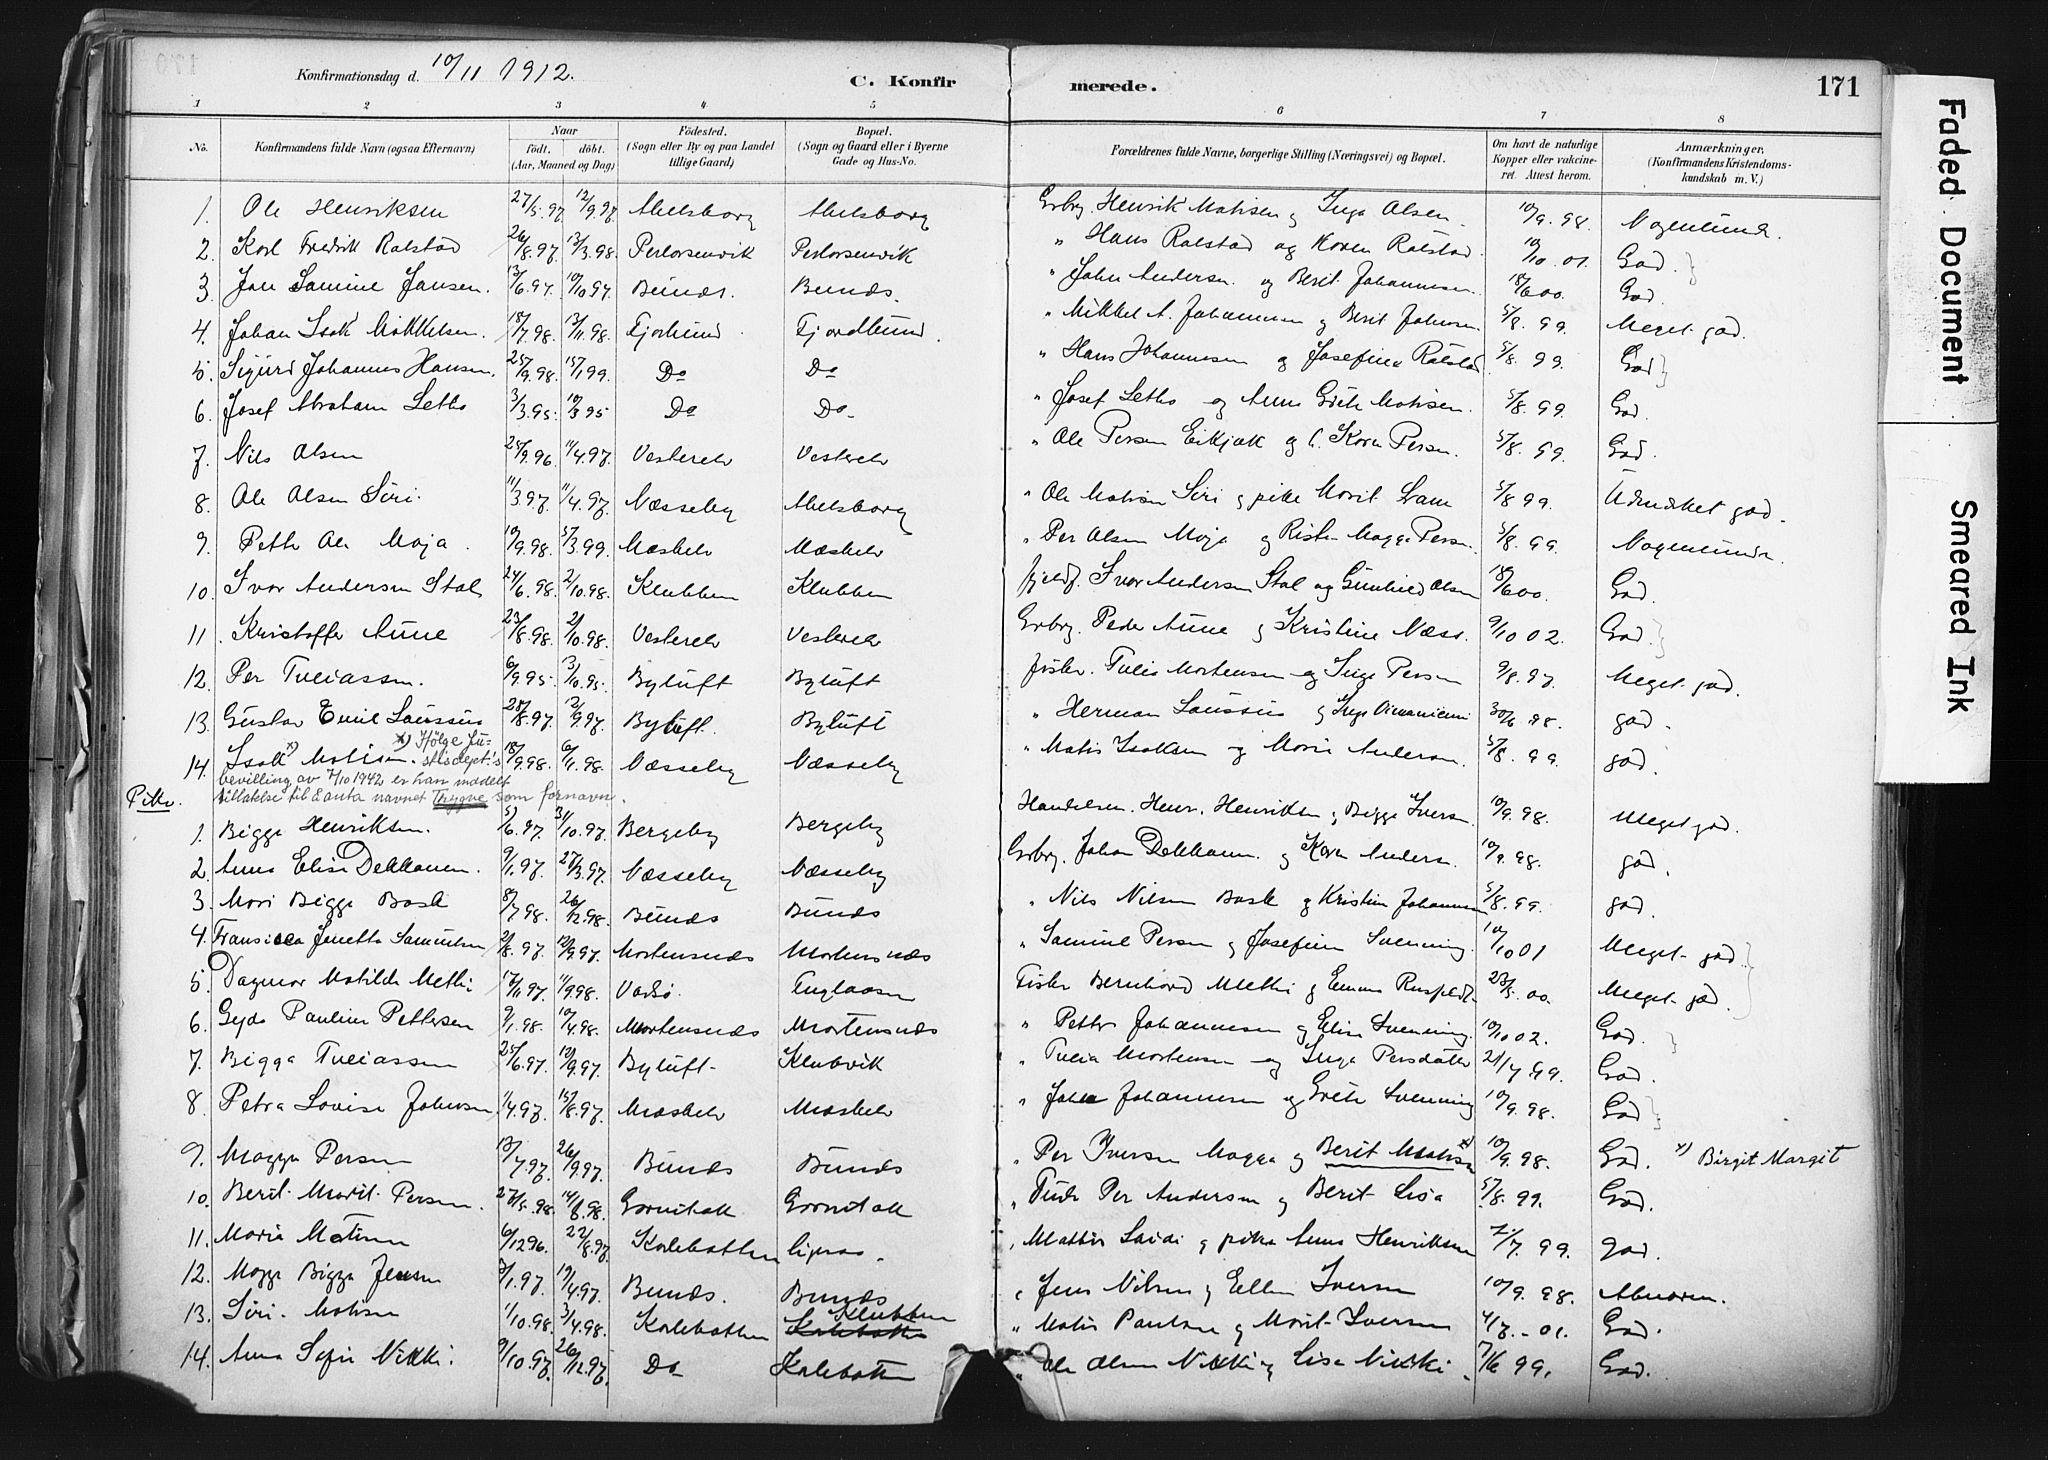 Konfirmationsdag d. 10/11 1912. C. Konfirmerede. 171
1 2 3 4 5 6 7 8
No. Konfirmandens fulde Navn (ogsaa Efternavn) Naar født. døbt. (Aar, Maaned og Dag) Fødested. (Sogn eller By og paa Landet tillige Gaard) Bopæl. (Sogn og Gaard eller i Byerne Gade og Hus-No. Forældrenes fulde Navne, borgerlige Stilling (Næringsvei) og Bopæl. Om havt de naturlige Kopper eller vakcineret. Attest herom. Anmærkninger. (Konfirmandens Kristendomskundskab m. V.)
1. Ole Henriksen 27/5.97. 12/9.97. Abelsborg Abelsborg Grbrg. Henrik Matisen og Inga Olsen. 10/9.98. Nogenlunde.
2. Karl Fredrik Ralstad 26/8.97. 13/3.98. Perlorsenvik Perlorsenvik " Hans Ralstad og Karen Ralstad. 10/10.01. God.
3. Jon Samuel Jansen. 13/6.97. 10/10 97. Bunds. Bunds. " John Andersen og Berit Johannesen. 18/6 00. God.
4. Johan Isak Mikkelsen. 18/7.98. 13/11.98. Fjorbund Fjordbund. " Mikkel A. Johannesen og Berit Johnsen. 5/8. 99. Meget god.
5. Sigurd Johannes Hansen. 25/9.98. 15/1 99. Do Do " Hans Johannesen og Josefine Ralstad 5/8 99. God
6. Josef Abraham Letho 3/3.95. 10/3 95 Do Do " Josef Letho og Anna Grete Matisen. 5/8. 99. God.
7. Nils Olsen 25/9.96. 11/4.97. Vesterelv Vesterelv " Ole Persen Eikjok og Karen Persen. 5/8. 99. God.
8. Ole Olsen Siri. 11/3.97. 11/4.97. Næsseby Abelsborg " Ole Matisen Siri og pike Marit 5/8 99. Udmærket god.
9. Petter Ole Moja. 10/9.98. 5/3.99. Mæskelv Mæskelv " Per Olsen Moja og Riste Magga Persen. 5/8. 99. Nogenlunde
10. Ivar Andersen Stal 24/6.98. 2/10.98. Klubben Klubben fjeldf. Ivar Andersen Stal og Gunhild Olsen 18/6 00. God.
11. Kristoffer Aune 23/8.98. 2/10.98. Vesterelv Vesterelv Grbrg. Peder Aune og Kristine Næss. 9/10 02. God.
12. Per Tuliassen. 6/9 95. 3/10.95. Byluft Byluft fisker. Tulis Mortensen og Inga Persen 9/8.97. Meget god.
13. Gustav Emil Saussus 28/8.97. 12/9 97. Byluft. Byluft " Herman Saussus og Inga 30/6 98. god.
14. Isak x) Matisen. 18/9.98. 6/11.98. Næsseby Næsseby " Matis Isaksen og Marie Andersen. 5/8. 99. god.
x) Ifølge Justisdept.'s
bevilling av 7/10 1942 er han meddelt
tillatelse til å anta navnet Trygve som fornavn.
Piker.
1. Bigga Henriksen. 5/6.97. 31/10.97. Bergeby Bergeby Handelsm. Henr. Henriksen og Bigga Iversen. 10/9.98. Meget god.
2. Anna Elise Dekkanen. 9/1.97. 27/3.97. Næsseby Næsseby Grbrg. Johan Dekkanen og Karen Andersen. 10/9.98. god.
3. Mari Bigga Bask 8/7.98. 26/12.98. Bunds Bunds " Nils Nilsen Bask og Kristine Johannesen 5/8.99. god.
4. Fransisca Janetta Samuelsen 2/8.97. 12/9.97. Mortensnæs Mortensnæs " Samuel Persen og Josefine Svenning. 10/10 01 Meget god
5. Dagmar Matilde Methi 17/11 97. 11/9 98. Vadsø. Fuglaasen Fisker Bernhard Methi og Emma Rusfeldt 23/5. 00. Meget god.
6. Gyda Pauline Pettersen 9/1.98. 10/4.98. Mortensnæs Mortensnæs " Petter Johannesen og Elise Svenning. 10/10 02. God.
7. Bigga Tuliassen 25/6.97. 12/9.97. Byluft Klubvik " Tulia Mortensen og Inga Persdatter 21/7 99. God.
8. Petra Lovise Johnsen 1/4.97. 15/8.97. Mæskelv Mæskelv " John Johannesen og Grete Svenning 10/9.98. God
9. Magga Persen 13/7.97. 26/9.97. Bunds Bunds " Per Iversen Magga og Berit Matisen x) 10/9.98. God. x) Birgit Margit
10. Berit Marit Persen. 27/5.98. 14/8.98. Gornitak Gornitak " Tude Per Andersen og Berit Lisa 5/8. 99. God.
11. Marie Matisen 6/12 96. 22/8.97. Karlebotten " Mattis Saidi og pike Anna Henriksen 2/7. 99. god.
12. Magga Bigga Jensen 3/1.97. 19/4.97. Bunds. Bunds " Jens Nilsen og Ellen Iversen 10/9.98.
13. Siri Matisen 1/10.98. 3/4.98. Karlebotten Klubben Karlebotten " Matis Paulsen og Marit Iversen 4/8. 01. God.
14. Anna Sofie Nikki. 9/10.97. 26/12.97. Do Karlebotten " Ole Olsen Nikki og Lisa Nikki. 7/6 99. God.
Faded Document
Smeared Ink